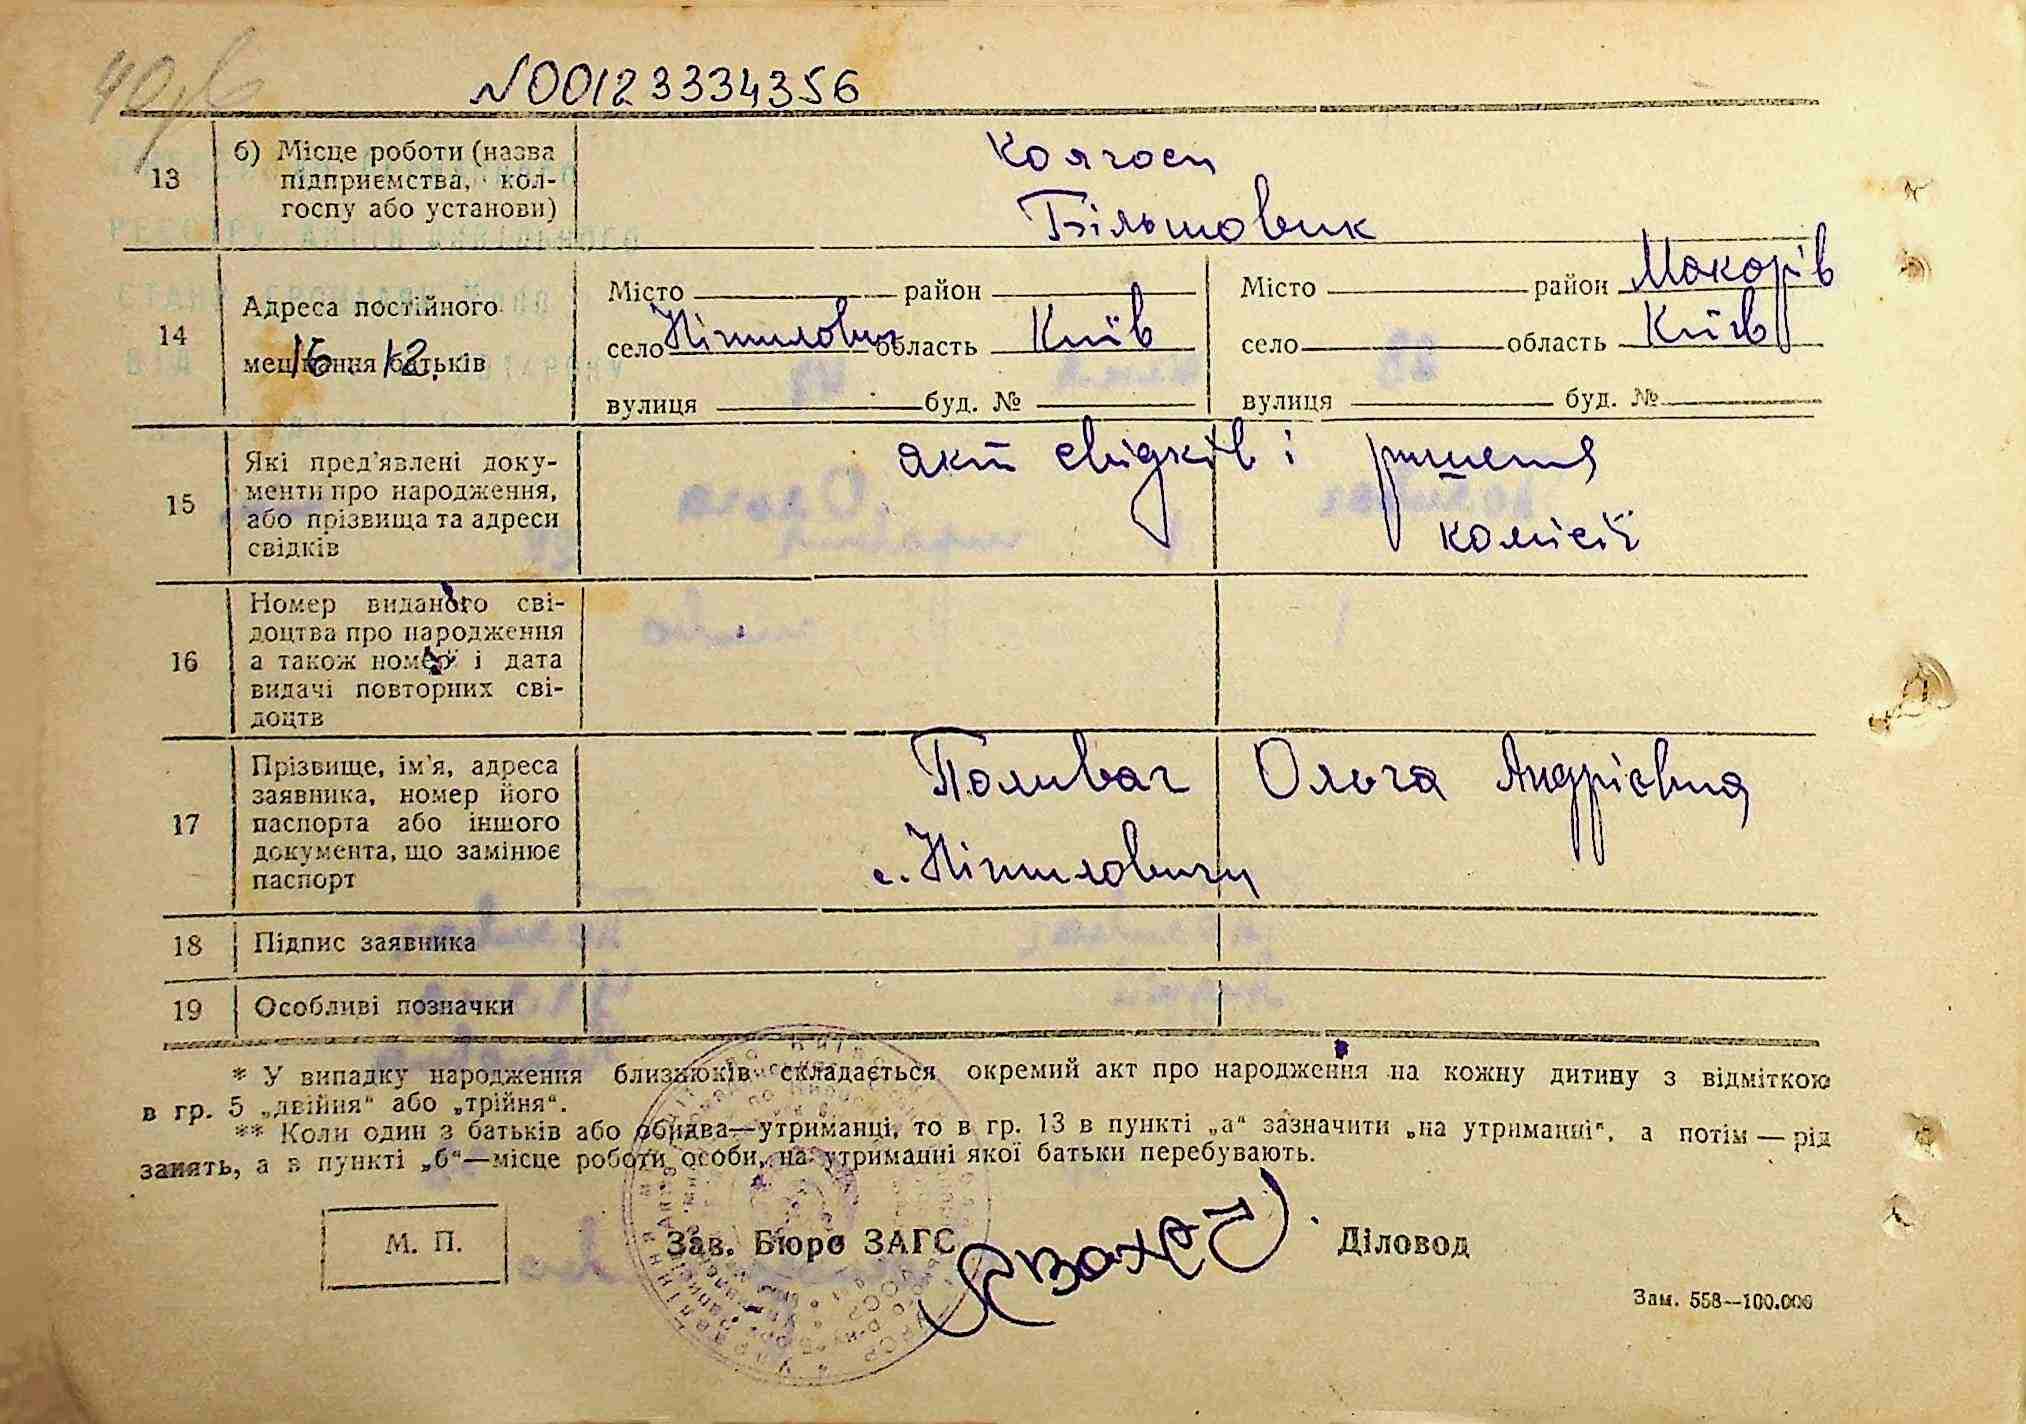 N00123334356
13
б) Місце роботи (назва
підприємства, кол-
госпу або установи)
Колгосп
Більшовик
14
Адреса постійного
мешкання батьків
16 12.
Місто район
село Ніжиловичі область Київ
вулиця буд. №
Місто район Макарів
село область Київ
вулиця буд. №
15
Які пред'явлені доку-
менти про народження,
або прізвища та адреси
свідків
акт свідків і рішення
комісії
16
Номер виданого сві-
доцтва про народження
а також номер і дата
видачі повторних сві-
доцтв
17
Прізвище, ім'я, адреса
заявника, номер його
паспорта або іншого
документа, що замінює
паспорт
Поливач Ольга Андрієвна
с. Ніжиловичи
18
Підпис заявника
19
Особливі позначки
* У випадку народження близнюків складається окремий акт про народження на кожну дитину з відміткою
в гр. 5 „двійня“ або „трійня“.
** Коли один з батьків або обидва—утриманці, то в гр. 13 в пункті „а“ зазначити „на утриманні“, а потім — рід
занять, а в пункті „б“—місце роботи особи, на утриманні якої батьки перебувають.
М. П.
Зав. Бюро ЗАГС
Діловод
Зам. 558—100.000